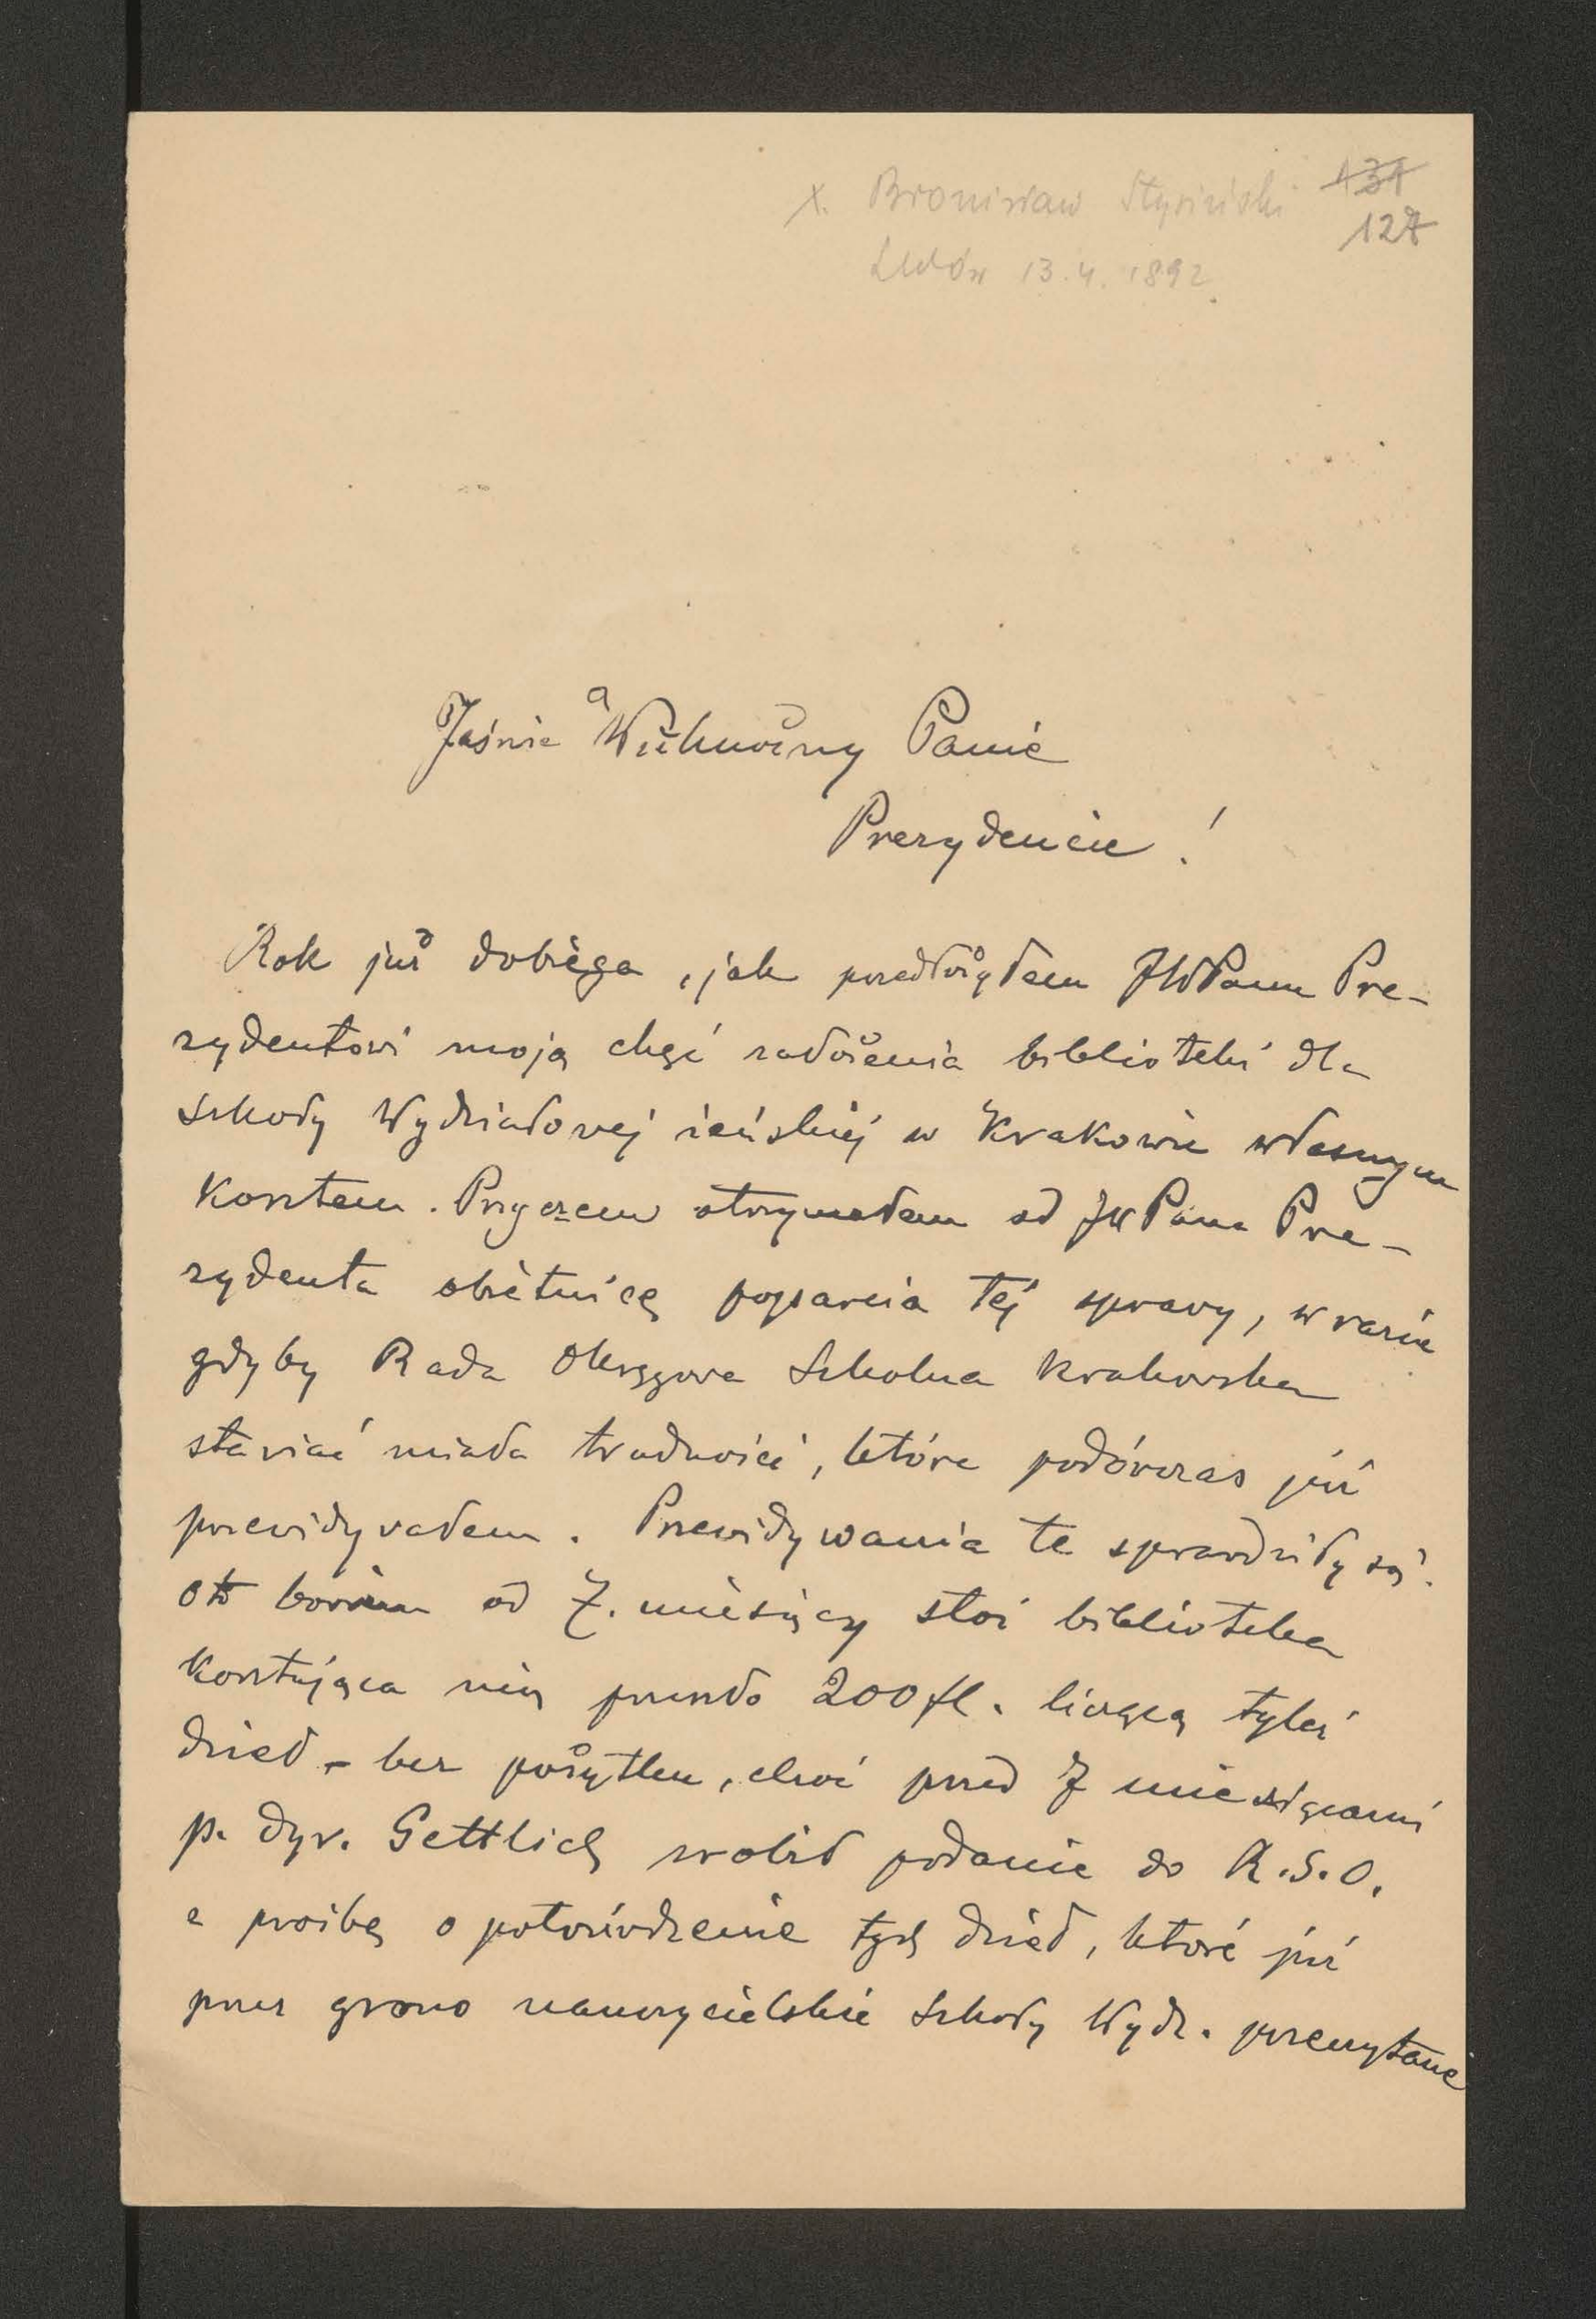 x. Bronisław Stysiński 131
127
Lwów 13.4.1892.
Jaśnie Wielmożny Panie
Prezydencie!
Rok już dobiega, jak przedłożyłem JWPanu Pre-
zydentowi moją chęć założenia biblioteki dla
Szkoły Wydziałowej żeńskiej w Krakowie własnym
kosztem. Przyczem otrzymałem od JWPana Pre-
zydenta obietnicę poparcia tej sprawy, w razie
gdyby Rada Okręgowa Szkolna krakowska
stawiać miała trudności, które podówczas już
przewidywałem. Przewidywania te sprawdziły się.
Oto bowiem od 7. miesięcy stoi biblioteka
kosztująca mię przeszło 200 fl. licząca tyleż
dzieł - bez pożytku, choć przed 7 miesiącami
p. dyr. Gettlich zrobił podanie do R.S.O.
z prośbą o potwierdzenie tych dzieł, które już
przez grono nauczycielskie Szkoły Wydz. przeczytane